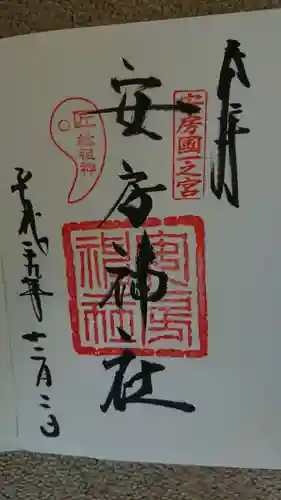 奉拝
安房國一之宮
安房神社
匠総祖神
安房神社
平成二十五年十二月二日